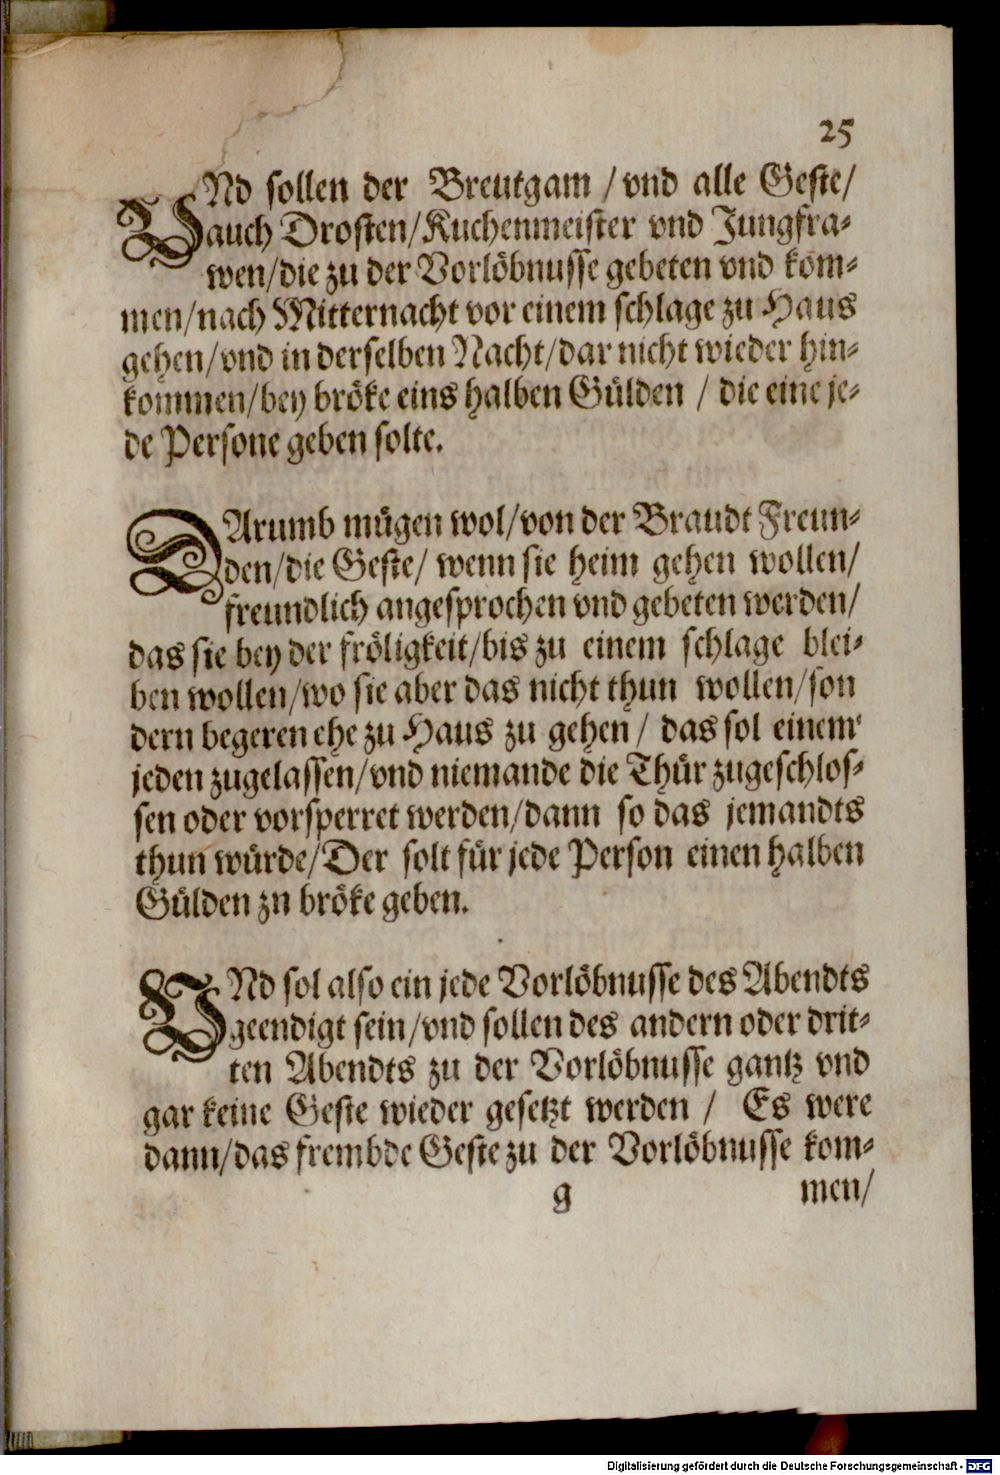 25
VNd sollen der Breutgam / vnd alle Geste/
auch Drosten/Kuchenmeister vnd Jungfra-
wen/die zu der Vorlöbnusse gebeten vnd kom-
men/nach Mitternacht vor einem schlage zu Haus
gehen/vnd in derselben Nacht/dar nicht wieder hin-
kommen/bey bröke eins halben Gülden / die eine je-
de Persone geben solte.
DArumb mügen wol/von der Braudt Freun-
den/die Geste/ wenn sie heim gehen wollen/
freundlich angesprochen vnd gebeten werden/
das sie bey der fröligkeit/bis zu einem schlage blei-
ben wollen/wo sie aber das nicht thun wollen/son
dern begeren ehe zu Haus zu gehen / das sol einem
jeden zugelassen/vnd niemande die Thür zugeschlos-
sen oder vorsperret werden/dann so das jemandts
thun würde/Der solt für jede Person einen halben
Gülden zu bröke geben.
VNd sol also ein jede Vorlöbnusse des Abendts
geendigt sein/vnd sollen des andern oder drit-
ten Abendts zu der Vorlöbnusse gantz vnd
gar keine Geste wieder gesetzt werden / Es were
dann/das frembde Geste zu der Vorlöbnusse kom-
g men/
Digitalisierung gefördert durch die Deutsche Forschungsgemeinschaft - DFG